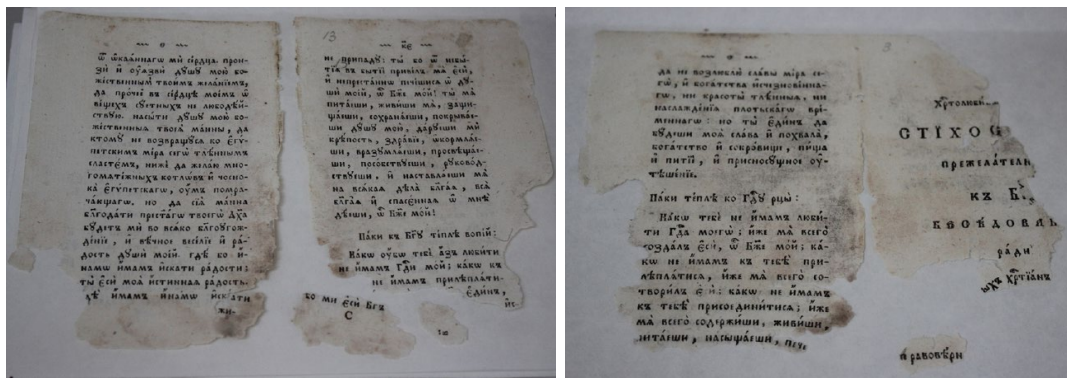 о
ѿ ѡкаѧннагѡ ми се́рдца. прон-
зи́ и҆ оу҆ѧзви́ дꙋшꙋ мою̀ бо-
же́ственным твои́мъ жела́нїемъ,
да про́чее въ се́рдцѣ мое́мъ ѿ
ве́щехъ сꙋ́етныхъ не любодѣ́й-
ствꙋю. насы́ти дꙋ́шꙋ мою̀ бо-
же́ственныѧ твоеѧ̀ ма́нны, да
ктомꙋ̀ не возвращꙋ́сѧ ко є҆гѵ́-
петскимъ мі́ра сегѡ̀ тлѣ̑ннымъ
сласте́мъ, нижѐ да жела́ю мно-
гомѧте́жныхъ котлѡ́въ и҆ чосно-
ка̀ є҆гѵ́петскагѡ, оу҆́мъ помра-
ча́ющагѡ, но да сїѧ̀ ма́нна
блг҃ода́ти прест҃а́гѡ твоегѡ̀ дх҃а
бꙋ́детъ мѝ во всѧ́ко бл҃гоꙋгож-
де́нїе, и҆ вѣ́чное весе́лїе и҆ ра́-
дость дꙋшѝ мое́й. гдѣ́ бо и҆-
на́мѡ и҆́мамъ и҆ска́ти ра́дости:
ты̀ є҆сѝ моѧ̀ и҆́стиннаѧ ра́дость.
гдѣ̀ и҆́мамъ и҆на́мѡ и҆ска́ти
жи-
13
не припадꙋ̀: ты́ бо ѿ небы-
тїѧ̀ въ бытїѐ приве́лъ мѧ̀ є҆сѝ,
и҆ непреста́ннѡ пече́шисѧ ѡ҆ дꙋ-
шѝ мое́й, ѽ бж҃е мо́й! ты̀ мѧ̀
пита́еши, живи́ши мѧ̀, защи-
ща́еши, сохранѧ́еши, покрыва́е-
ши дꙋ́шꙋ мою̀, да́рꙋеши мѝ
крѣ́пость, здра́вїе, ѡ҆кормлѧ́е-
ши, вразꙋмлѧ́еши, просвѣща́е-
ши, пособствꙋ́еши, рꙋково́д-
ствꙋеши, и҆ наставлѧ́еши мѧ̀
на всѧ̑каѧ дѣла̀ бл҃га́ѧ, всѧ̑
бл҃га̑ѧ и҆ спасє́ннаѧ ѡ҆ мнѣ̀
дѣ́еши, ѽ бж҃е мо́й!
Па́ки къ бг҃ꙋ те́плѣ вопі́й:
Ка́кѡ оу҆́бѡ тебѐ а҆́зъ люби́ти
не и҆́мамъ гд҃и мо́й; ка́кѡ къ
не и҆́мамъ прилѣплѧ́ти-
є҆ди́нъ,
бо ми є҆сѝ бг҃ъ
с
3
да не возлюблю̀ сла́вы мі́ра се-
гѡ̀, и҆ бога́тства и҆счезнове́нна-
гѡ, ни красоты̀ тлѣ́нныѧ, ни
наслажде́нїѧ плотска́гѡ вре́-
меннагѡ: но ты̀ є҆ди́нъ да
бꙋ́деши моѧ̀ сла́ва и҆ похвала̀,
бога́тство и҆ сокро́вище, пи́ща
и҆ питїѐ, и҆ присносꙋ́щное оу҆-
тѣше́нїе.
Па́ки те́плѣ ко гдⷭ҇ꙋ рцы̀:
Ка́кѡ тебѐ не и҆́мамъ люби́-
ти гдⷭ҇а моего̀; и҆́же мѧ̀ всего̀
созда́лъ є҆сѝ, ѽ бж҃е мо́й; ка́-
кѡ не и҆́мамъ къ тебѣ̀ при-
лѣплѧ́тисѧ, и҆́же мѧ̀ всего̀ со-
твори́лъ є҆сѝ: ка́кѡ не и҆́мамъ
къ тебѣ̀ присоедини́тисѧ; и҆́же
мѧ̀ всего̀ содержи́ши, живи́ши,
пита́еши, насыща́еши,
Хрⷭ҇толюби
СТІХОС
прежела́тел
къ Б
бесѣдов
ра́ди
ыхъ хрⷭ҇тїа́нъ
правовѣ́рн